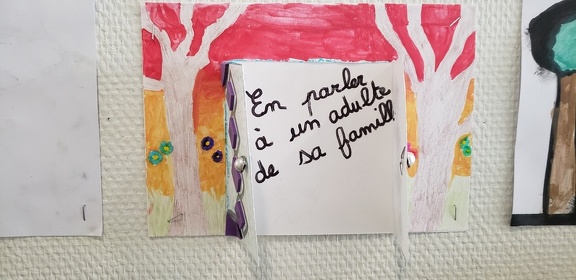 En parler
à un adulte
de sa famill